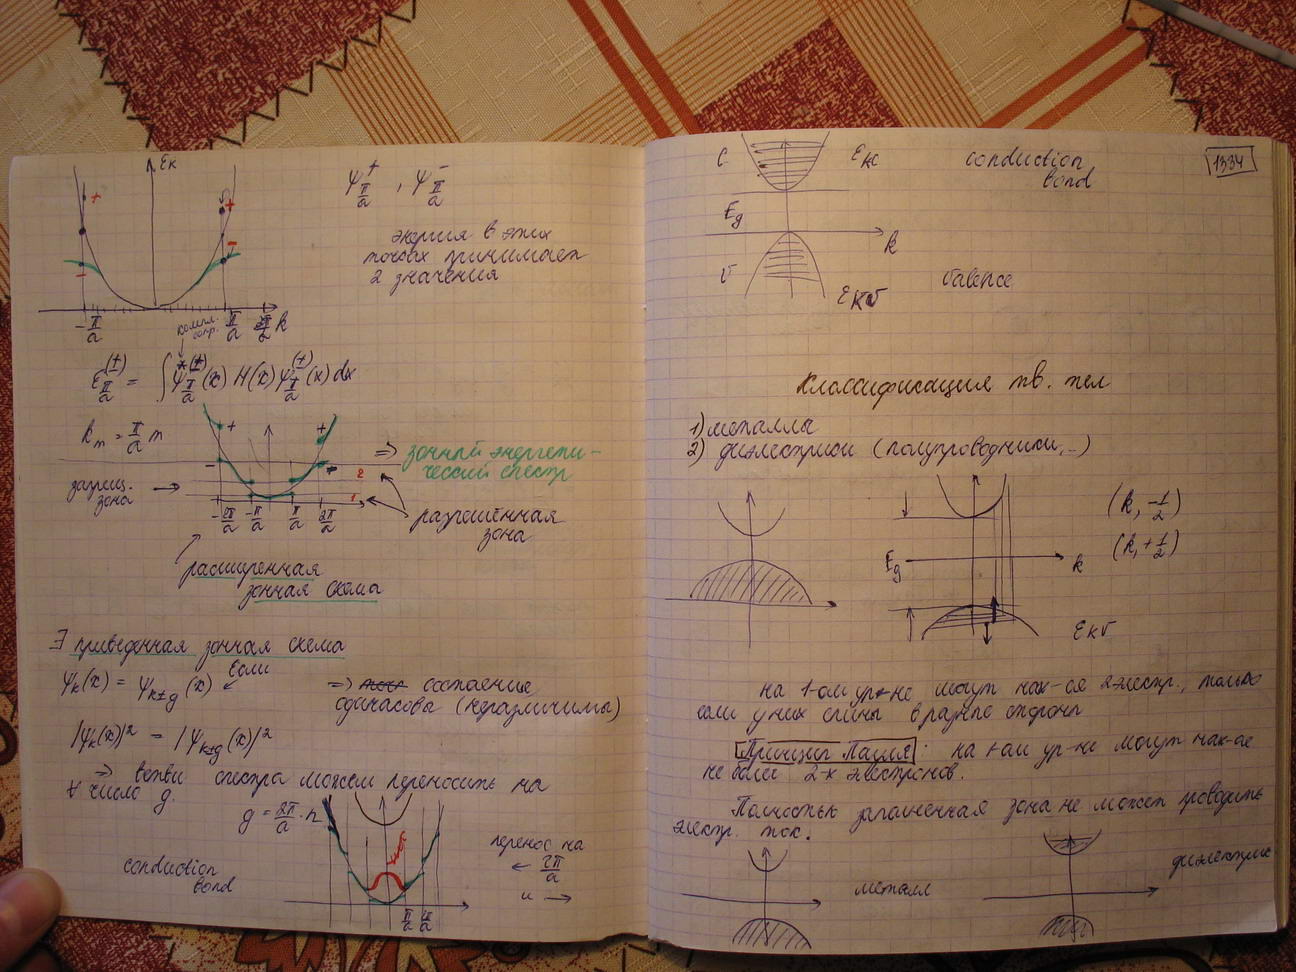 Eк
+
+
-
-
-π/a
π/a
k
компл. сопр.
ψ⁺π/a , ψ⁻π/a
энергия в этих
точках принимает
2 значения
ε(±)π/a = ∫ψ*(±)π/a(x) H(x) ψ(±)π/a(x) dx
km = π/a m
+
+
-
2
1
запрещ.
зона
-2π/a
-π/a
π/a
2π/a
⇒ зонный энергети-
ческий спектр
разрешённая
зона
расширенная
зонная схема
∃ приведенная зонная схема
ψk(x) = ψk±g(x)
Если
⇒ состояния
одинаковы (неразличимы)
|ψk(x)|² = |ψk±g(x)|²
⇒ ветви спектра можем переносить на
± число g.
g = 2π/a · n
conduction
bond
π/a
2π/a
перенос на
← 2π/a
и →
1334
C
Eкc
conduction
bond
Eg
k
v
Eкv
valence
Классификация тв. тел
1) металлы
2) диэлектрики (полупроводники, ..)
Eg
k
(k, -1/2)
(k, +1/2)
Eкv
на 1-ом ур-не могут нах-ся 2 электр., только
если у них спины в разные стороны
Принцип Паули: на 1-ом ур-не могут нах-ся
не более 2-х электронов.
Полностью заполненная зона не может проводить
электр. ток.
металл
диэлектрик